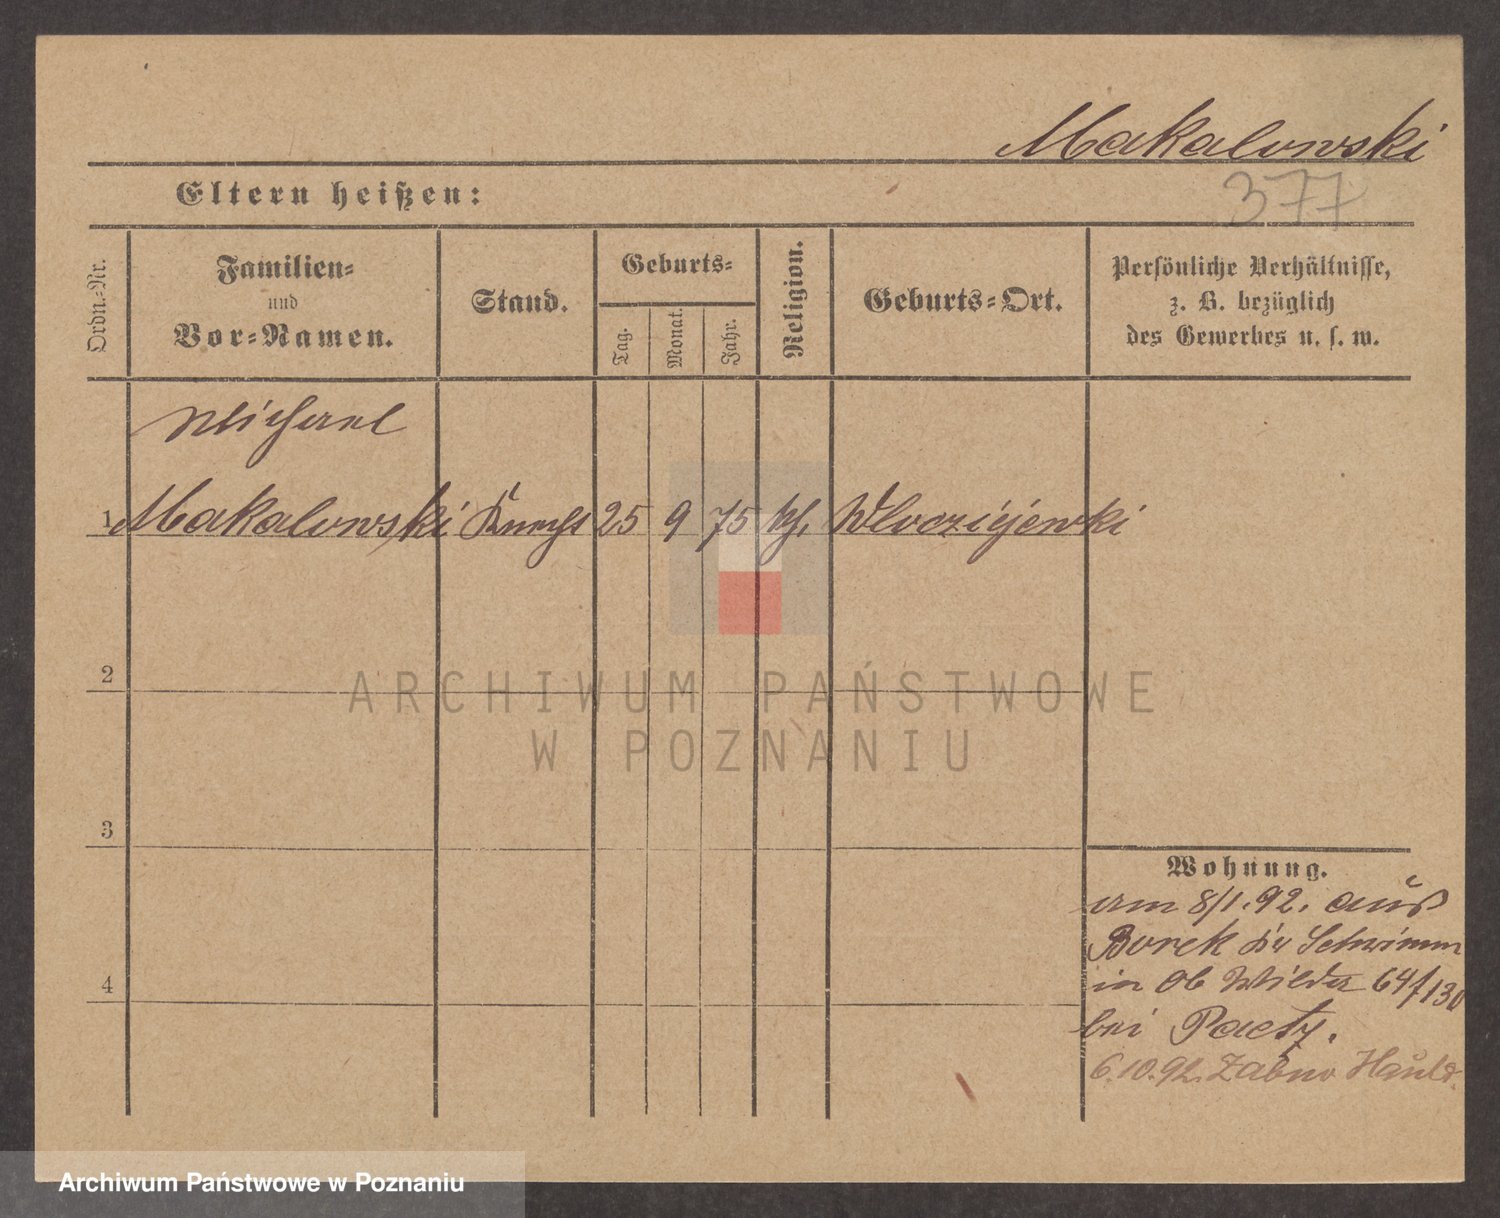 Makalowski
Eltern heißen:
377
Ordn.-Nr.
Familien-
und
Vor-Namen.
Stand.
Geburts-
Tag.
Monat.
Jahr.
Religion.
Geburts-Ort.
Persönliche Verhältnisse,
z. B. bezüglich
des Gewerbes u. s. w.
Michael
1 Makalowski Knecht 25 9 75 kth. Wloczijewki
2
3
4
ARCHIWUM PAŃSTWOWE
W POZNANIU
Wohnung.
am 8/1.92. aus
Borek Kr Schrimm
in Ob Wilda 64/130
bei Paetz.
6.10.92. Zabno Hauld.
Archiwum Państwowe w Poznaniu